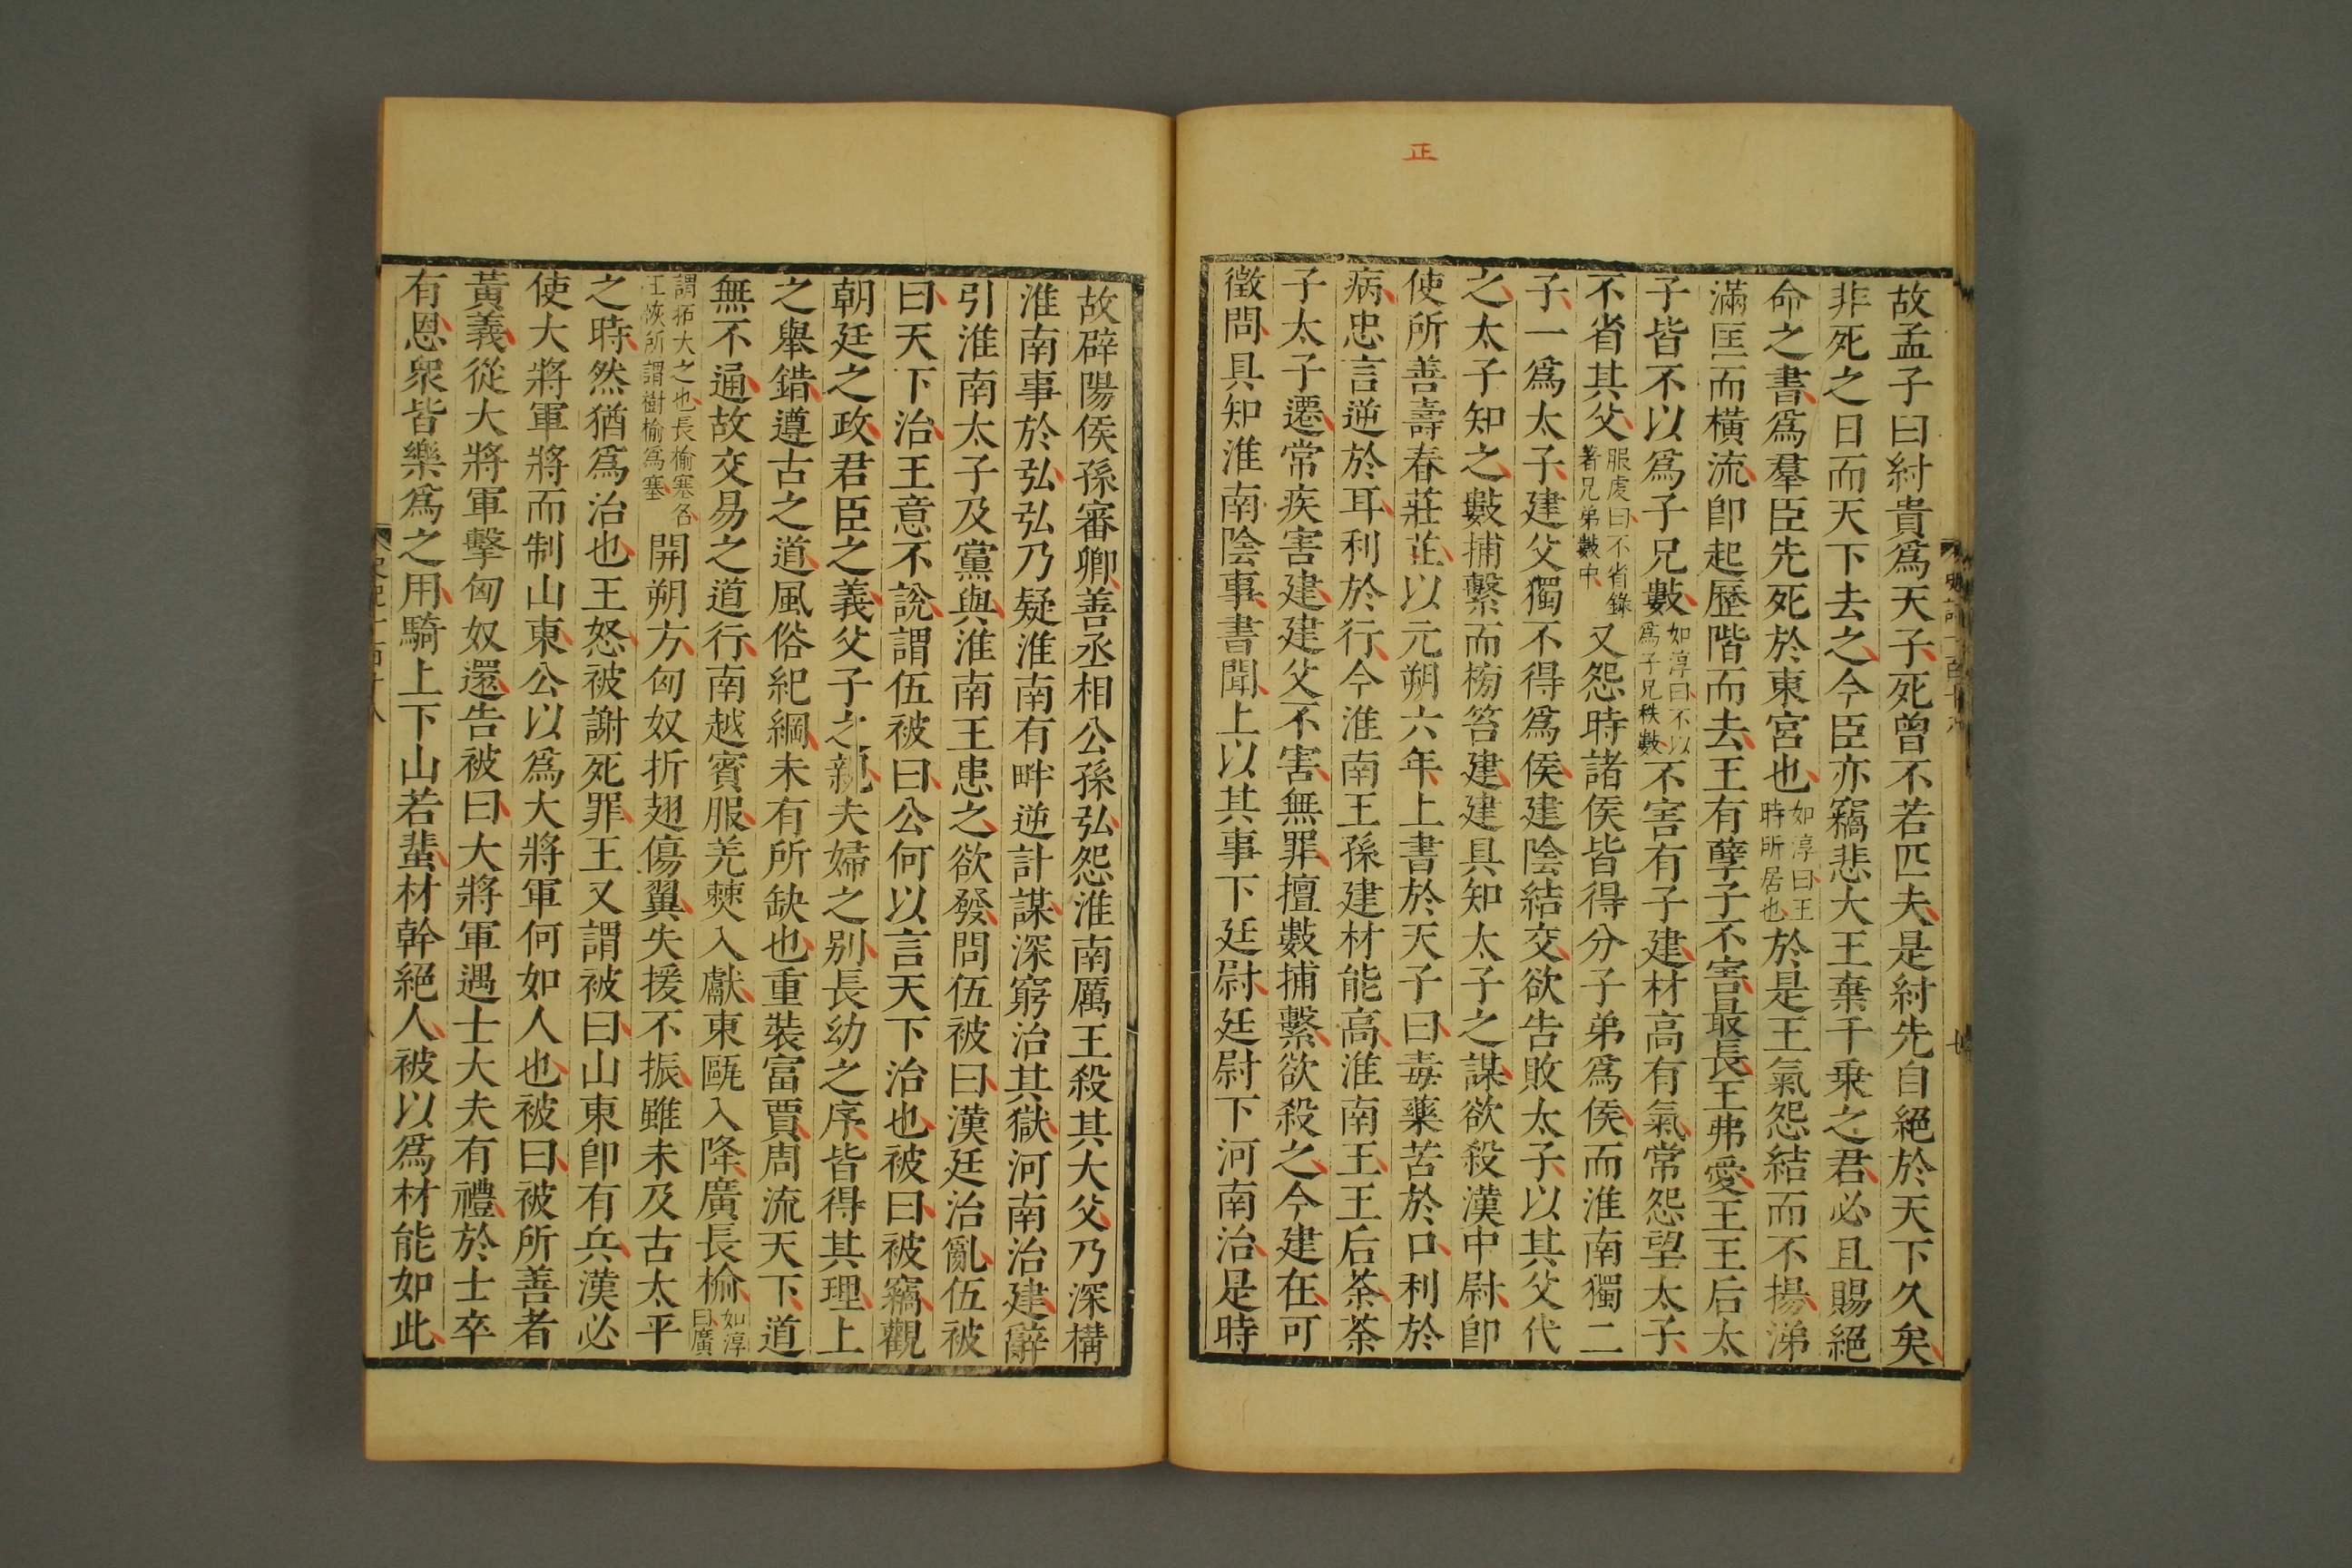 正
故孟子曰紂貴爲天子死曾不若匹夫是紂先自絕於天下久矣
非死之日而天下去之今臣亦竊悲大王棄千乗之君必且賜絕
命之書爲羣臣先死於東宮也如淳曰王時所居也於是王氣怨結而不揚涕
滿匡而橫流卽起歷階而去王有孽子不害最長王弗愛王王后太
子皆不以爲子兄數如淳曰不以爲子兄秩數不害有子建材高有氣常怨望太子
不省其父服虔曰不省錄著兄弟數中又怨時諸侯皆得分子弟爲侯而淮南獨二
子一爲太子建父獨不得爲侯建陰結交欲告敗太子以其父代
之太子知之數捕繫而榜笞建建具知太子之謀欲殺漢中尉卽
使所善壽春莊芷以元朔六年上書於天子曰毒藥苦於口利於
病忠言逆於耳利於行今淮南王孫建材能高淮南王王后荼荼
子太子遷常疾害建建父不害無罪擅數捕繫欲殺之今建在可
徵問具知淮南陰事書聞上以其事下廷尉廷尉下河南治是時
故辟陽侯孫審卿善丞相公孫弘怨淮南厲王殺其大父乃深構
淮南事於弘弘乃疑淮南有畔逆計謀深窮治其獄河南治建辭
引淮南太子及黨與淮南王患之欲發問伍被曰漢廷治亂伍被
曰天下治王意不說謂伍被曰公何以言天下治也被曰被竊觀
朝廷之政君臣之義父子之親夫婦之别長幼之序皆得其理上
之舉錯遵古之道風俗紀綱未有所缺也重裝富賈周流天下道
無不通故交易之道行南越賓服羌僰入獻東甌入降廣長榆如淳曰廣
謂拓大之也長榆塞名王恢所謂樹榆爲塞開朔方匈奴折翅傷翼失援不振雖未及古太平
之時然猶爲治也王怒被謝死罪王又謂被曰山東卽有兵漢必
使大將軍將而制山東公以爲大將軍何如人也被曰被所善者
黃義從大將軍擊匈奴還告被曰大將軍遇士大夫有禮於士卒
有恩衆皆樂爲之用騎上下山若蜚材幹絕人被以爲材能如此